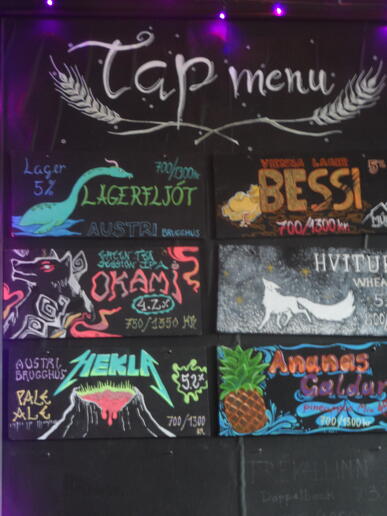 Tap menu
Lager
5%
700/1300 kr
LAGERFLJÓT
AUSTRI BRUGGHÚS
VIENNA LAGER
BESSI
700/1300 kr.
GREEN TEA
SESSION IPA
OKAMI
4.2%
750/1350 KR
HVITUR
WHEA
AUSTRI
BRUGGHÚS
HEKLA
5.2%
PALE
ALE
700/1300
KR
Ananas
Galdur
pineapple
700/1300 kr
Doppelbock 7.3